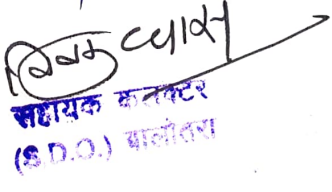 व्यास
सहायक कलक्टर
(S.D.O.) बालोतरा